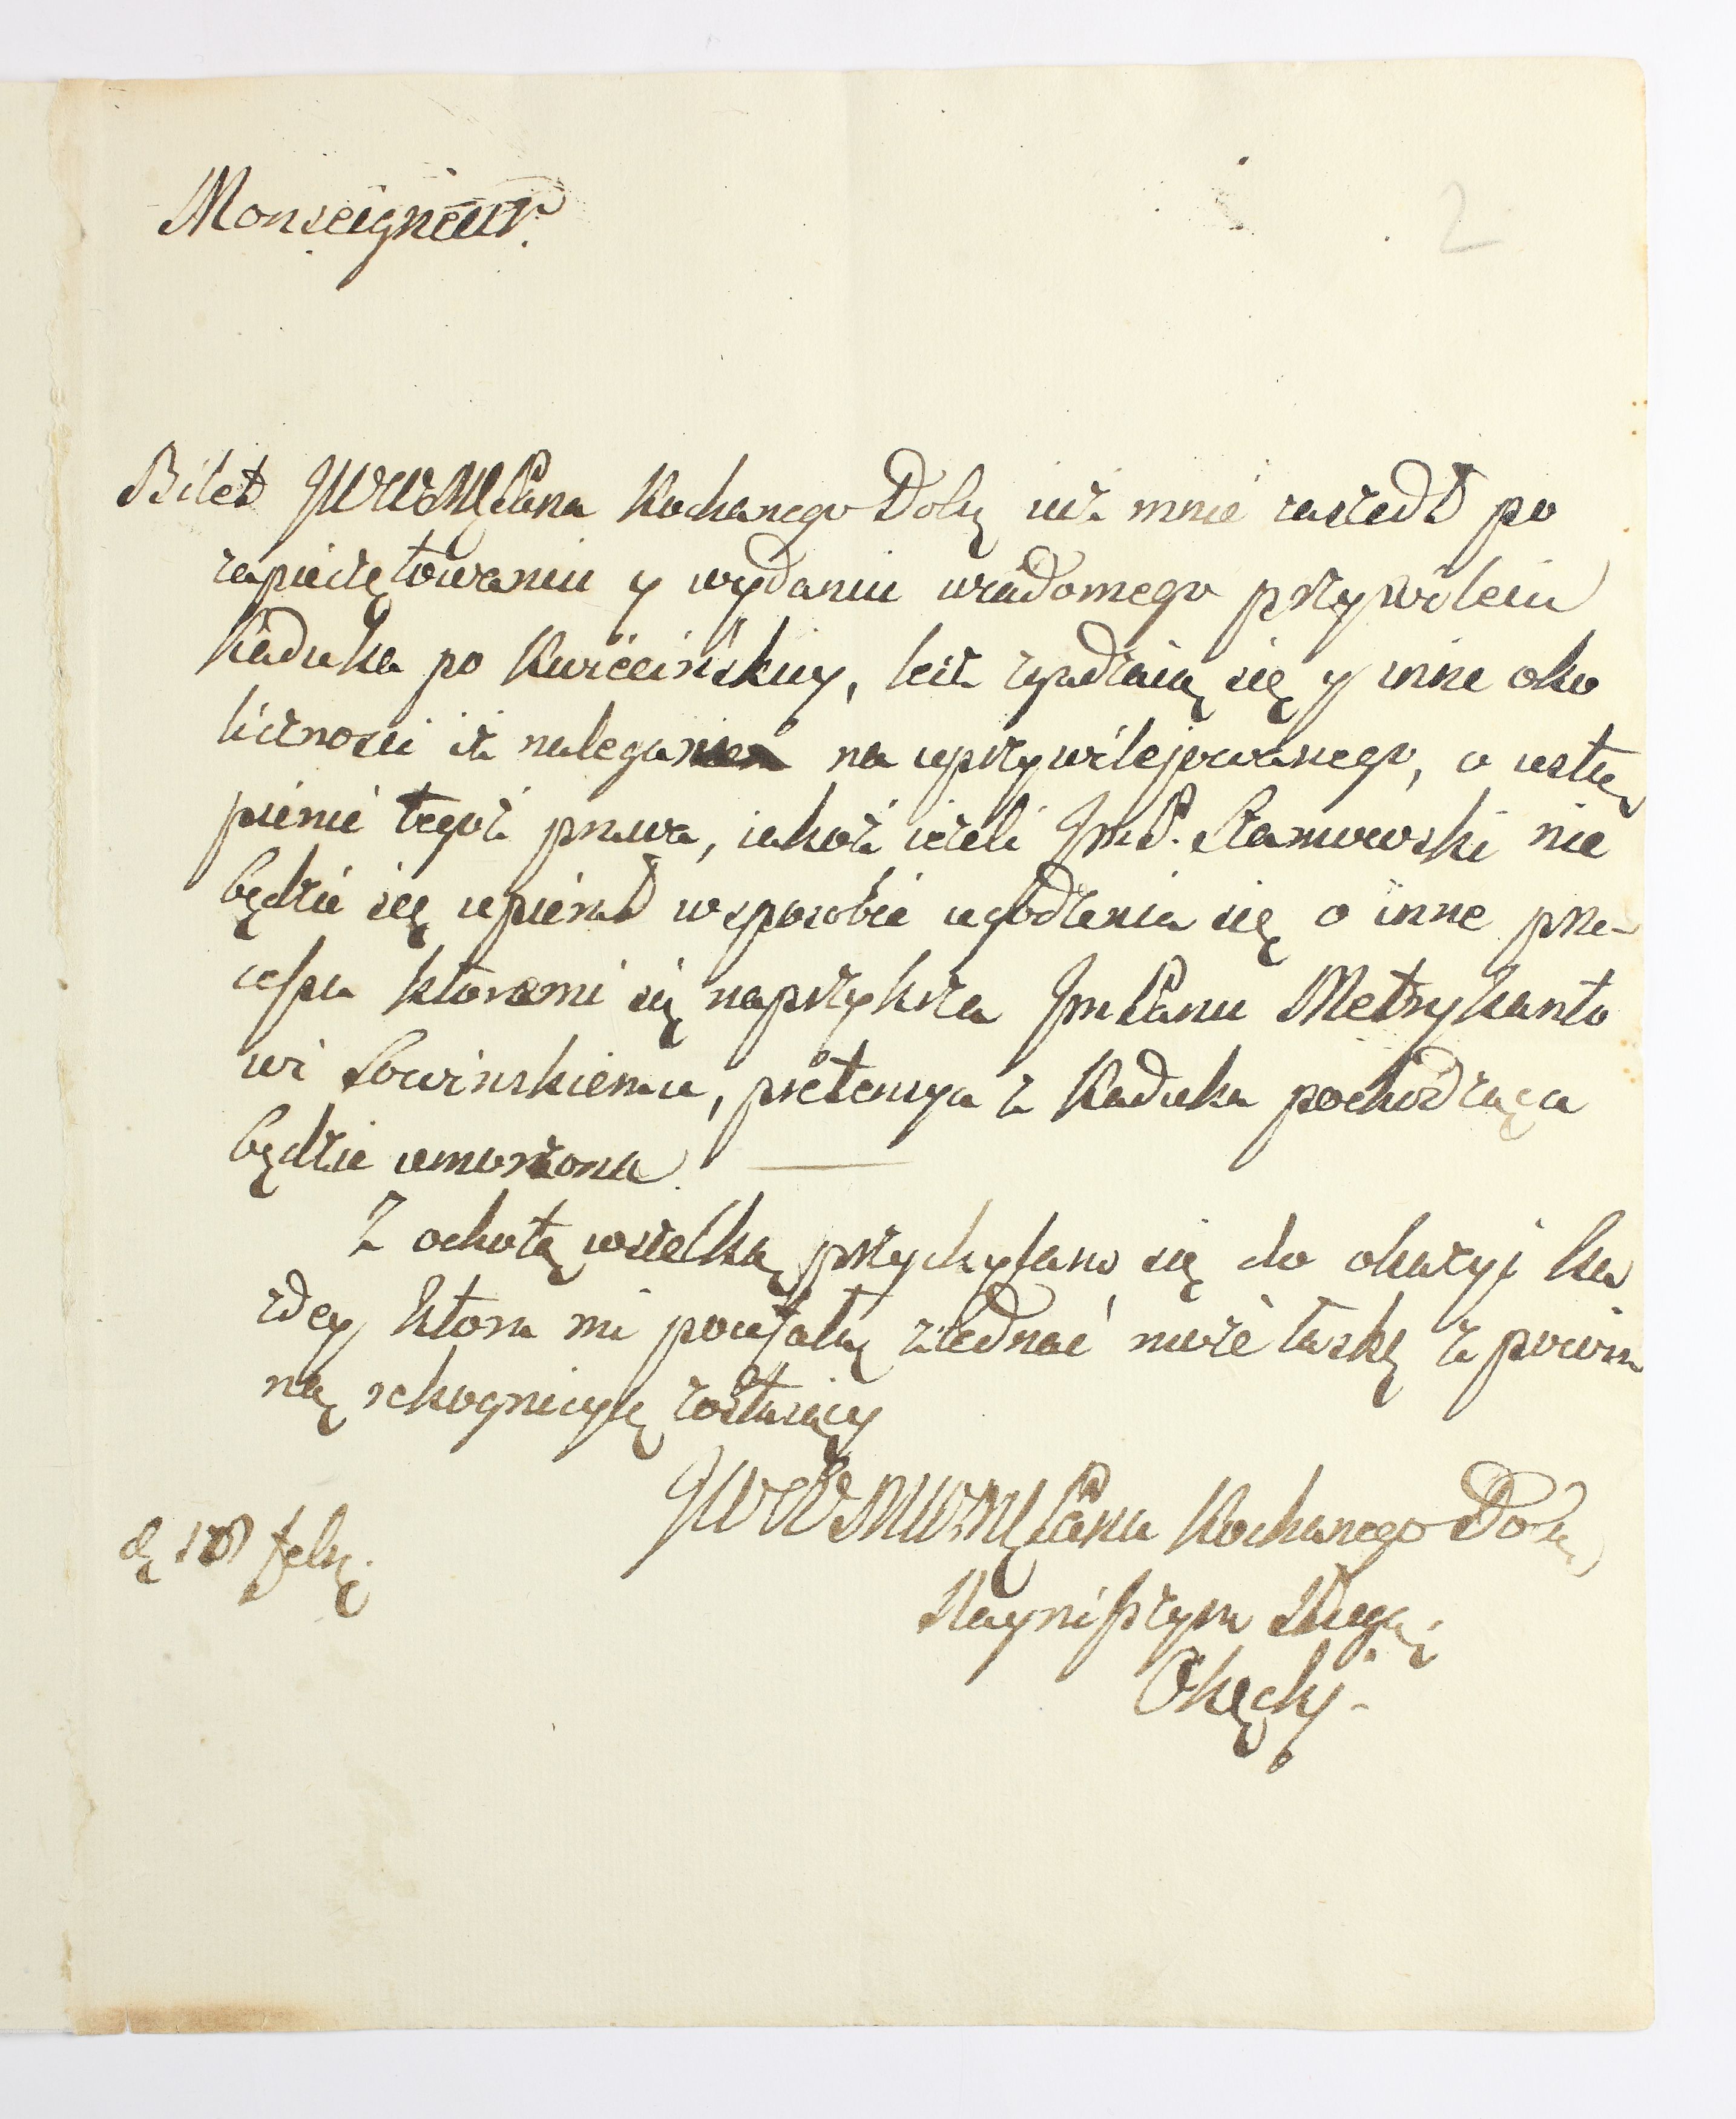 Monseigneur.
2
Bilet JWWMPana Kochanego Dobę iuż mnie zaszedł po
zapieczętowaniu y wydaniu wiadomego przywileiu
Kaduka po lecz zgadzaią się y inne oko
liczności iż na uprzywilejowanego, o ustą
pienie tegoż prawa, iakoż ieżeli JmP. nie
będzie się upierał w sposobie ugodzenia się o inne pro-
cessa ktoremi się naprzykrza JmPanu Metrykanto
wi Sowinskiemu, pretensya z Kaduka pochodząca
będzie umorzona.
Z ochotą wszelką przychylam się do okazyi ka
zdey ktora mi poufałą ziednać może łaskę z powin
ną rekognicyą zostaiąc
Pana Kochanego Dobę
d. 18 febr.
Nayniższym Sługą
Okęcki.